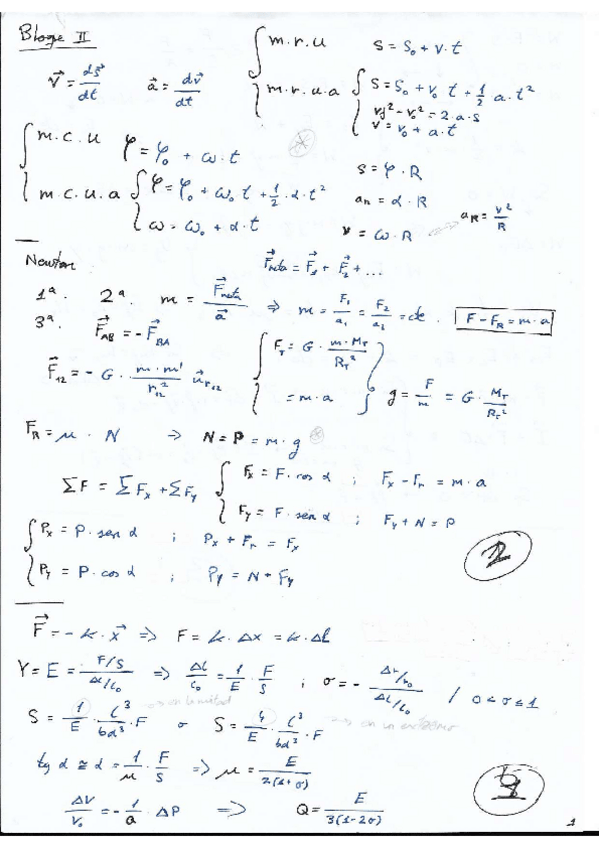 Bloque II
m.r.u   s = s₀ + v·t
v⃗ = ds⃗/dt   a⃗ = dv⃗/dt   m.r.u.a   s = s₀ + v₀ t + 1/2 a·t²
vf² - v₀² = 2·a·s
v = v₀ + a·t
m.c.u   φ = φ₀ + ω·t   s = φ·R
m.c.u.a   φ = φ₀ + ω₀ t + 1/2·α·t²   an = α·R   aR = v²/R
ω = ω₀ + α·t   v = ω·R
Newton   F⃗neta = F⃗₁ + F⃗₂ + ...
1ª.   2ª.   m = F⃗neta/a⃗ ⇒ m = F₁/a₁ = F₂/a₂ = cte.   F - FR = m·a
3ª.   F⃗AB = -F⃗BA
F⃗₁₂ = - G· m·m'/r₁₂² u⃗r₁₂   FT = G· m·MT/RT²
= m·a   g = F/m = G· MT/RT²
FR = μ · N ⇒ N = P = m·g
ΣF = ΣFx + ΣFy   Fx = F·cos α ;   Fx - Fr = m·a
Fy = F·sen α ;   Fy + N = P
Px = P·sen α ;   Px + Fr = Fx
Py = P·cos α ;   Py = N + Fy
F⃗ = -k·x⃗ ⇒ F = k·Δx = k·Δl
Y = E = F/S / Δl/l₀ ⇒ Δl/l₀ = 1/E · F/S ; σ = - Δr/r₀ / Δl/l₀ / 0<σ≤1
S = 1/E · l³/bd³ · F   o   S = 4/E · l³/bd³ · F
tg α ≅ α = 1/μ · F/S ⇒ μ = E/2(1+σ)
ΔV/V₀ = - 1/Q · ΔP ⇒ Q = E/3(1-2σ)
1